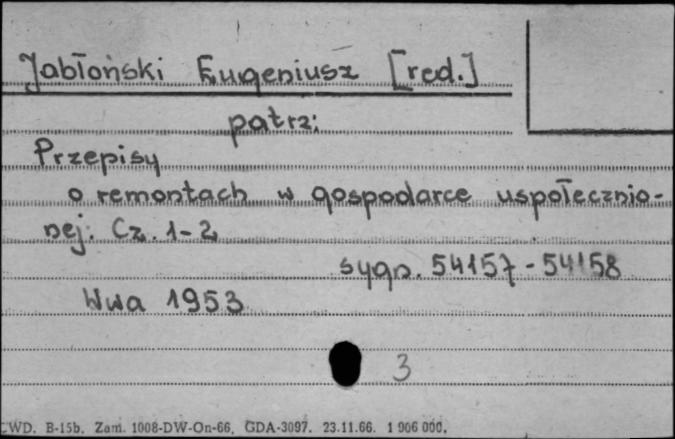 Jabłoński Eugeniusz [red.]
patrz:
Przepisy
o remontach w gospodarce uspołecznio-
nej. Cz. 1-2
sygn. 54157-54158
Wwa 1953
3
CWD. B-15b. Zam. 1008-DW-On-66. GDA-3097. 23.11.66. 1 906 000.